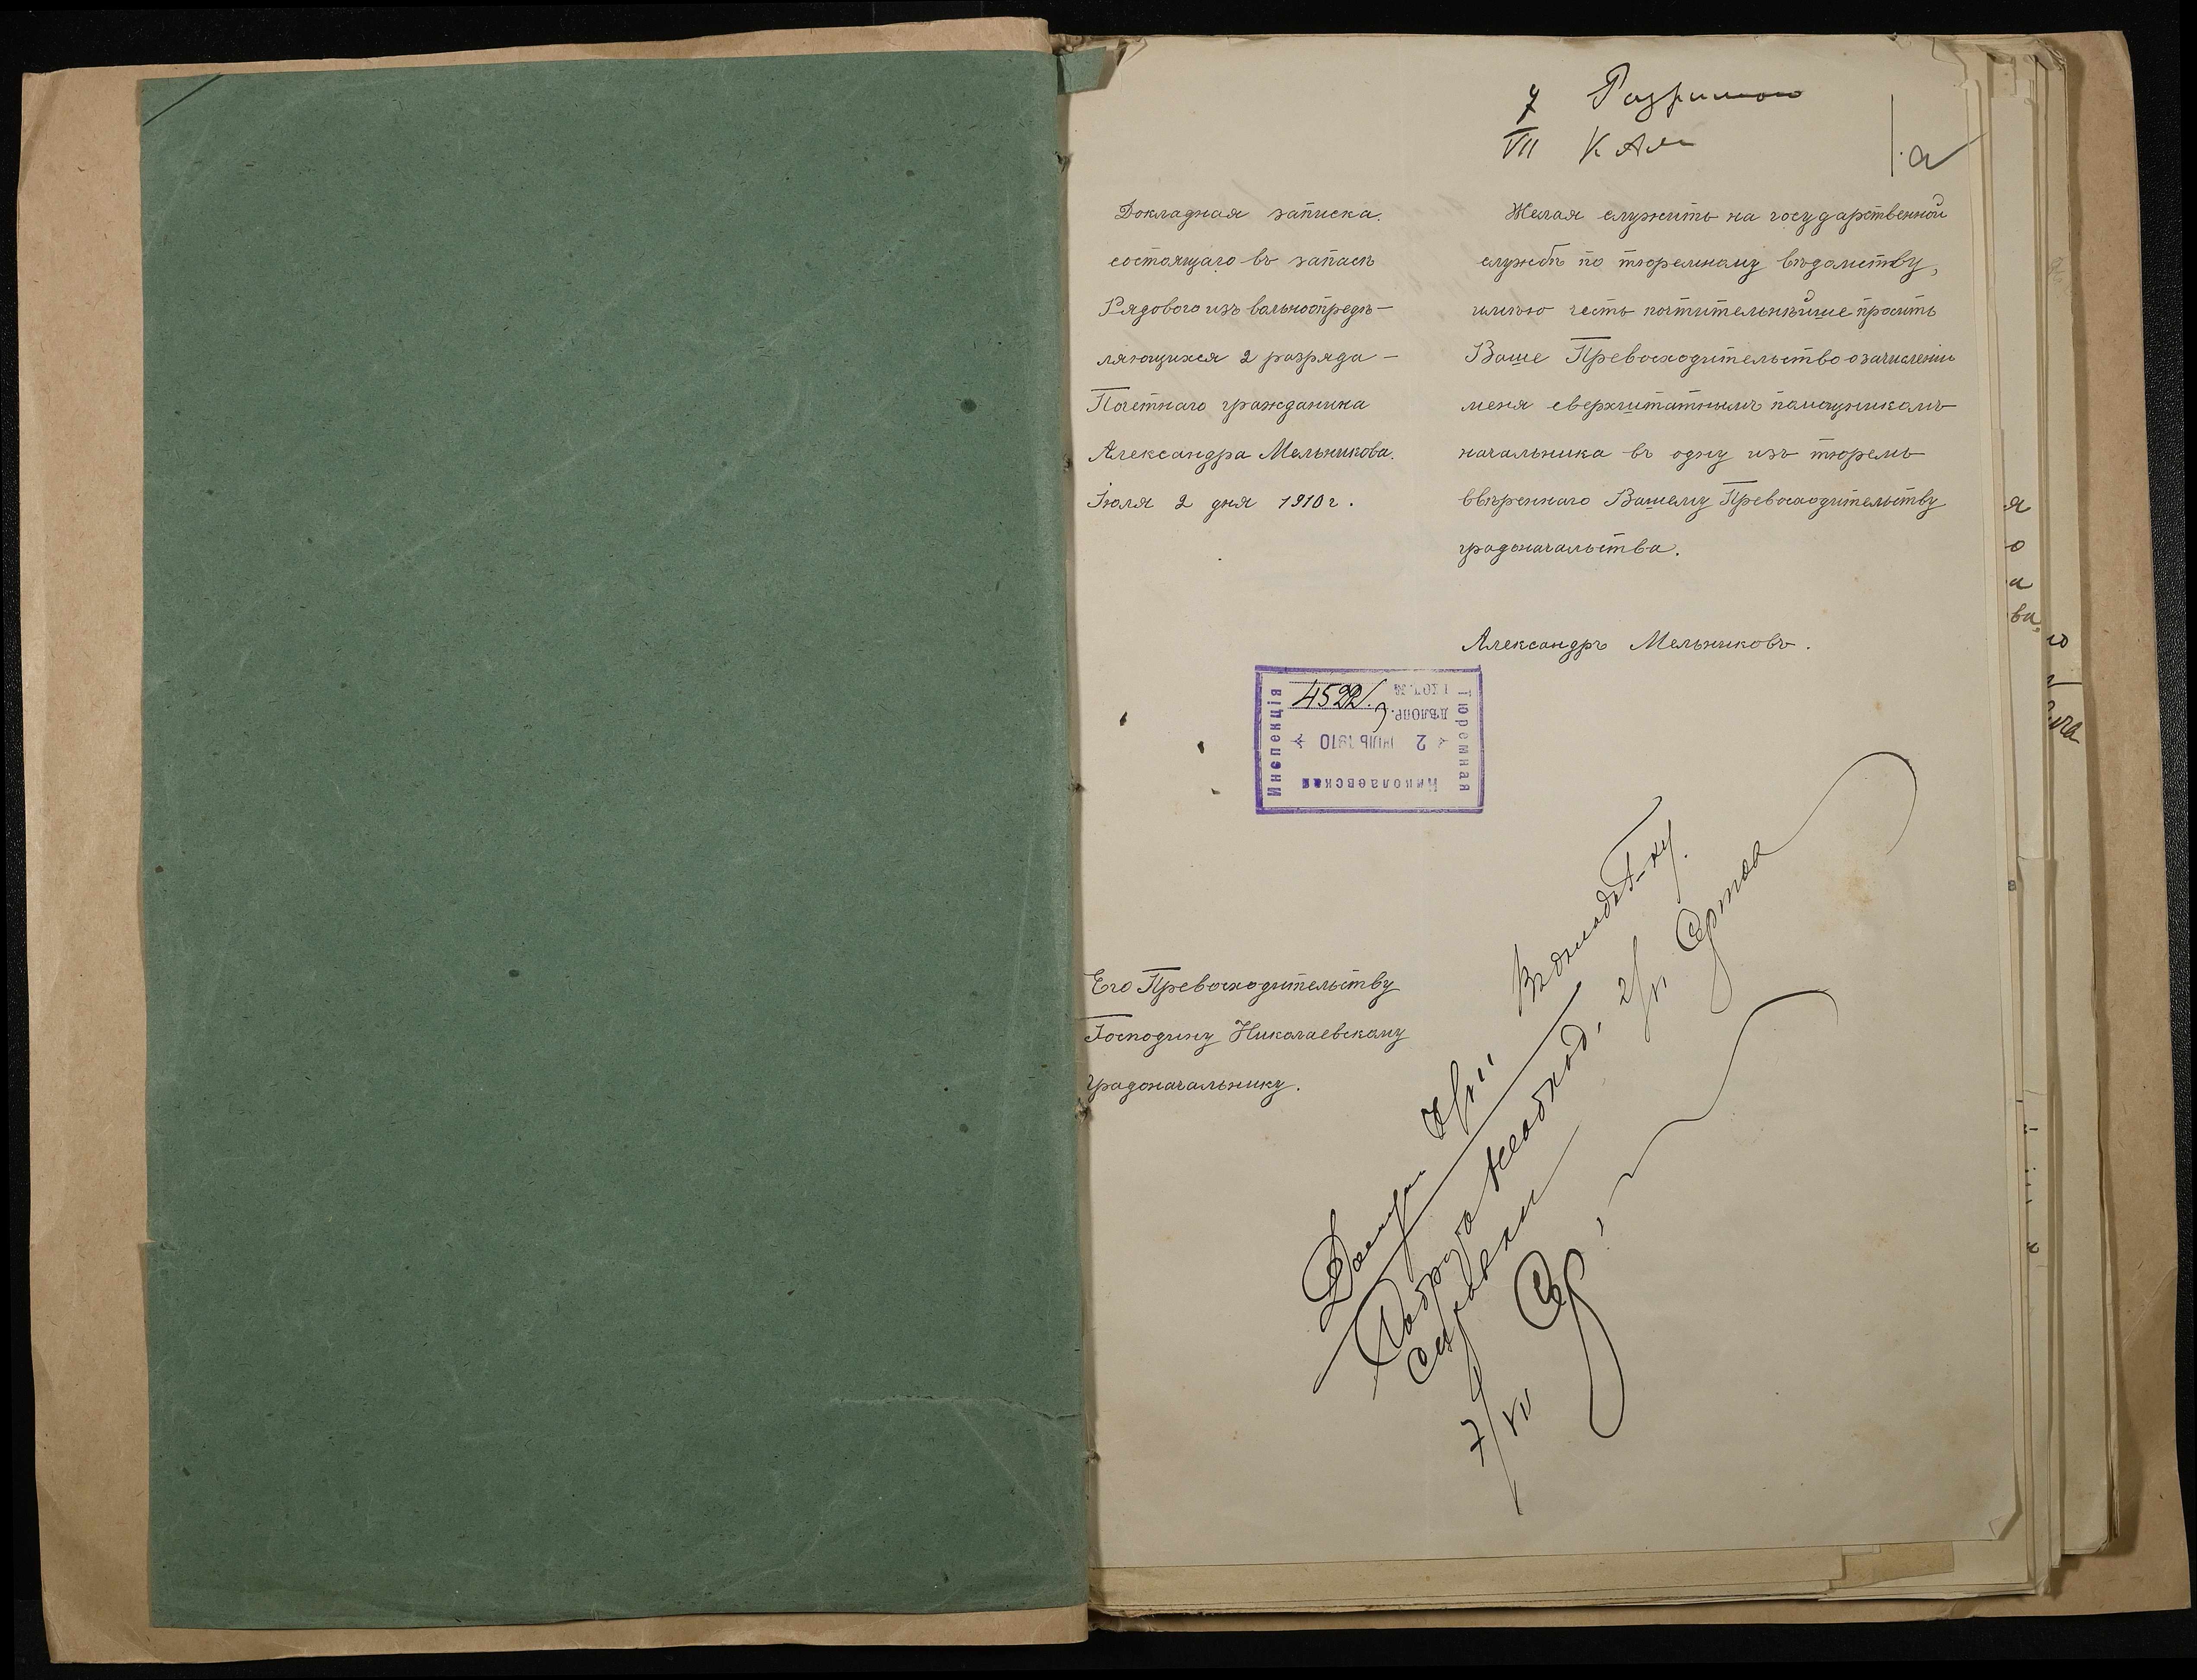 7 Разрѣшаю
VII
1.
Докладная записка.
состоящаго въ запасѣ
Рядового изъ вольноопредѣ-
ляющихся 2 разряда -
Почетнаго гражданина
Александра Мельникова.
Іюля 2 дня 1910 г.
Желая служить на государственной
службѣ по тюремному вѣдомству,
имѣю честь почтительнѣйше просить
Ваше Превосходительство о зачисленіи
меня сверхштатнымъ помощникомъ
начальника въ одну изъ тюремъ
ввѣреннаго Вашему Превосходительству
градоначальства.
Александръ Мельниковъ.
Николаевская
Тюремная
Инспекція
2 ИЮЛЬ 1910
ДѢЛОПР. 3
ВХОД. № 4522
Его Превосходительству
Господину Николаевскому
градоначальнику.
7/VII